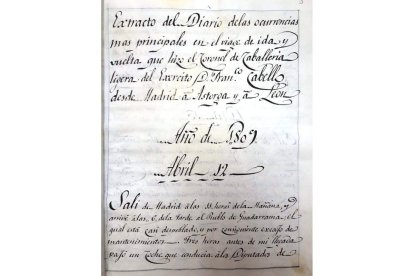 Extracto del Diario de las ocurrencias
mas principales en el viage de ida, y
vuelta que hizo el Coronel de Caballeria
ligera del Exercito D. Fran.co Cabello
desde Madrid à Astorga y à Leon
Año de 1809
Abril 12
Sali de Madrid á las 11 horas de la Mañana, y
arrivé a las 6 de la tarde al Pueblo de Guadarrama, el
qual està casi demolido, y por consiguiente escaso de
mantenimientos. Tres horas antes de mi llegada
paso un coche que conducia a la Diputados de